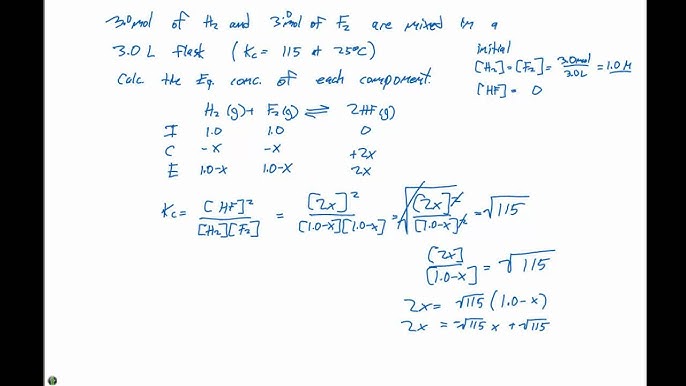 3.0 mol of H₂ and 3.0 mol of F₂ are mixed in a
3.0 L flask (Kc = 115 at 25°C)
Calc the Eq. conc. of each component.
initial
[H₂] = [F₂] = 3.0mol/3.0L = 1.0 M
[HF] = 0
H₂(g) + F₂(g) ⇌ 2HF(g)
I 1.0 1.0 0
C -x -x +2x
E 1.0-x 1.0-x 2x
Kc = [HF]²/[H₂][F₂] = [2x]²/[1.0-x][1.0-x] = √([2x]²/[1.0-x]²) = √115
[2x]/[1.0-x] = √115
2x = √115 (1.0-x)
2x = -√115 x + √115